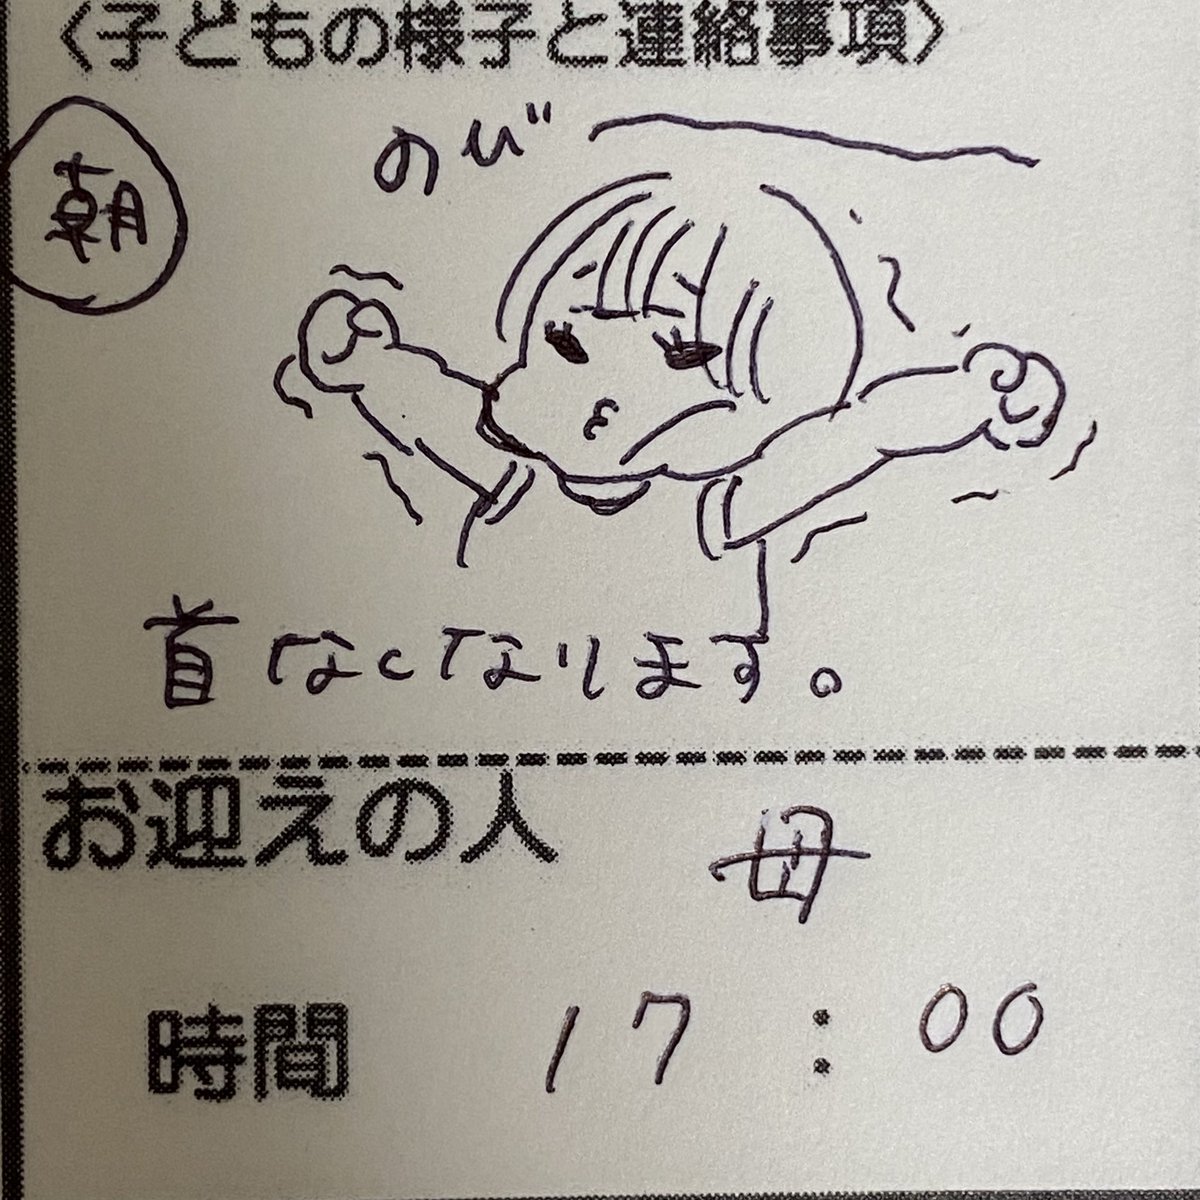 〈子どもの様子と連絡事項〉
朝
のび〜
首なくなります。
お迎えの人 母
時間 17:00